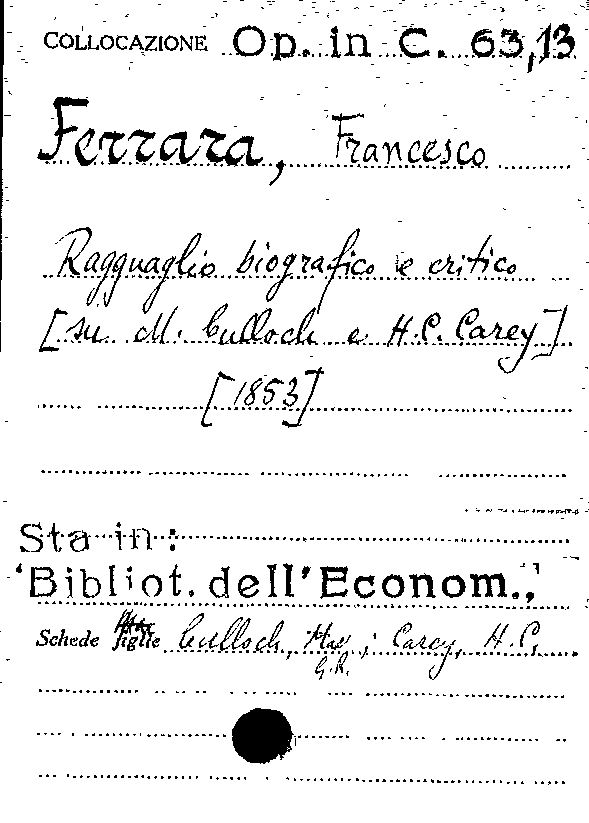 COLLOCAZIONE Op. in C. 63,13
Ferrara, Francesco
Ragguaglio biografico e critico
[su M. Culloch e H.C. Carey]
[1853]
Sta in:
'Bibliot. dell'Econom.,'
Schede figlie Culloch, Mac ; Carey, H.C.
G.R.